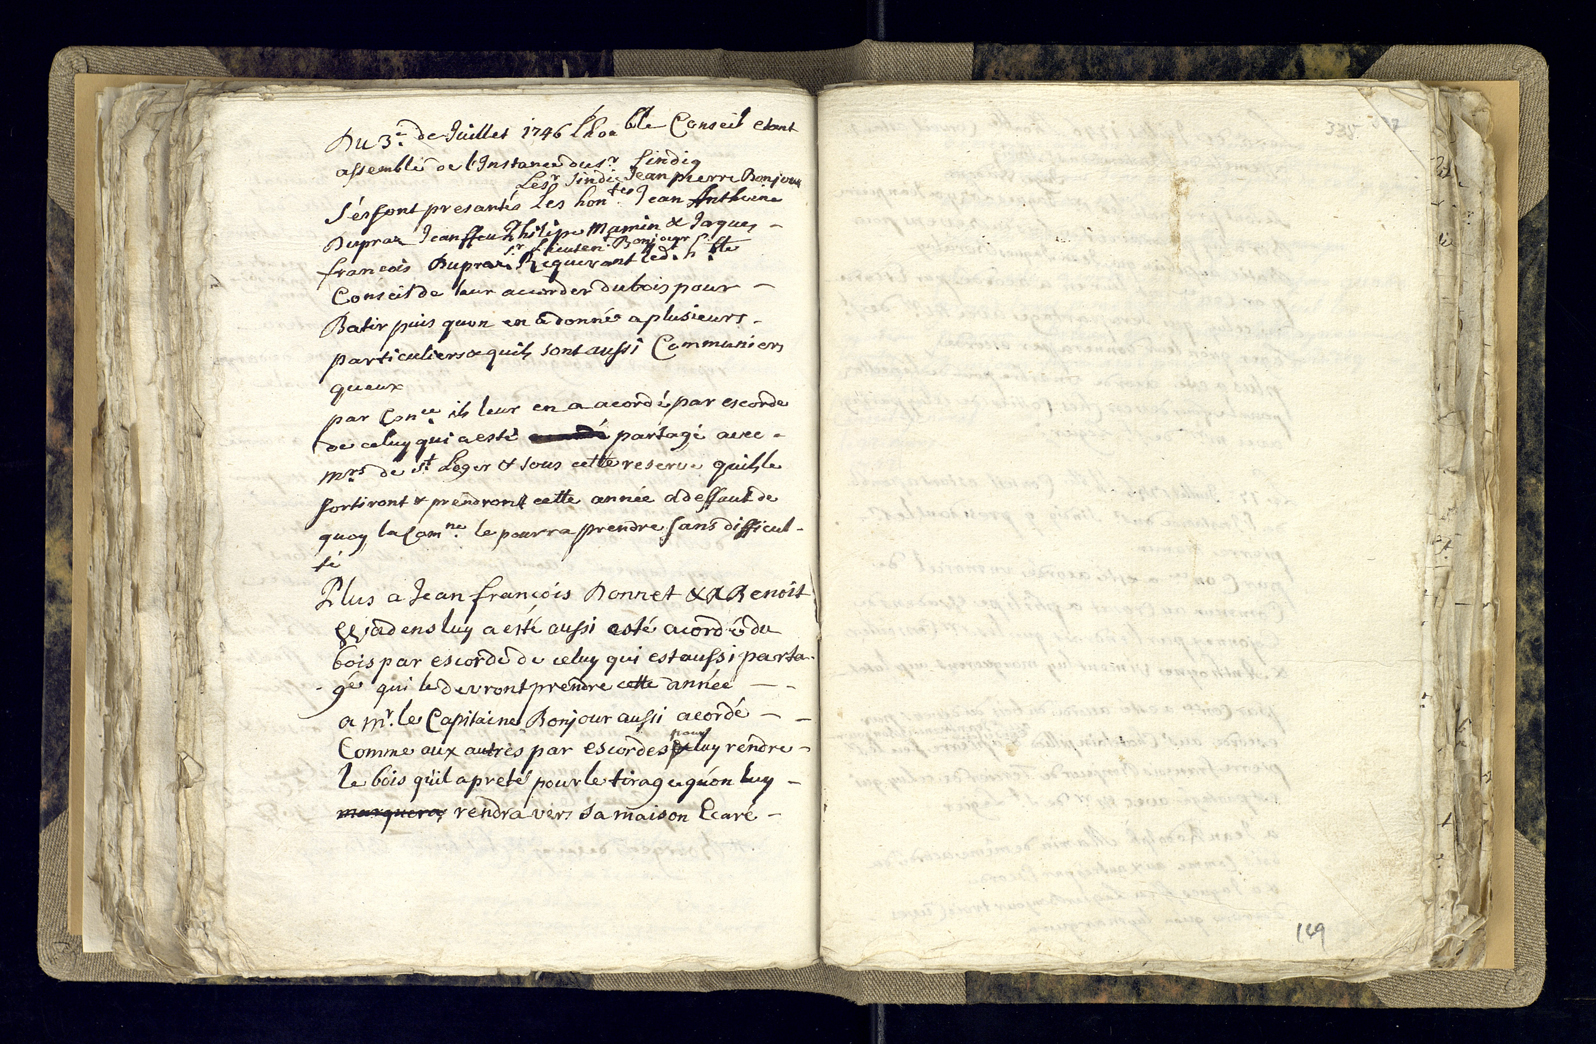 Du 3.e de Juillet 1746 L'hoable Conseil etant
assemblé de l'Instance du sr. Sindiq
Le sr. Sindiq Jean pierre Bonjour
s'ésfont presantés Les hon.tes Jean Anthoine
Dupraz Jean ffeu Philipe Mamin & Jaques -
sr. Lieutent. Bonjour
francois Dupraz. Requerant led.t h.ble
Conseil de leur accorder du bois pour -
Batir puis quon en a donné a plusieurs -
particuliers & quils sont aussi Communiers
queux
par Con.ce ils leur en a acordé par escorde
de celuy qui a esté partagé avec -
Mrs. de St. Leger & sous cette reserve quils le
sortiront & prendront cette année a deffaut de
quoy la Com.ne le pourra prendre sans difficul -
té
Plus a Jean francois Bonnet & a Benoit
luy a esté aussi esté acordé du
bois par escorde de celuy qui est aussi parta -
- gé qui le devront prendre cette année - -
a mr. le Capitaine Bonjour aussi acordé - -
pour
Comme aux autres par escordes luy rendre -
le bois quil a preté pour le tirage quon luy -
marquera rendra vers sa maison Ecaré -
335
149